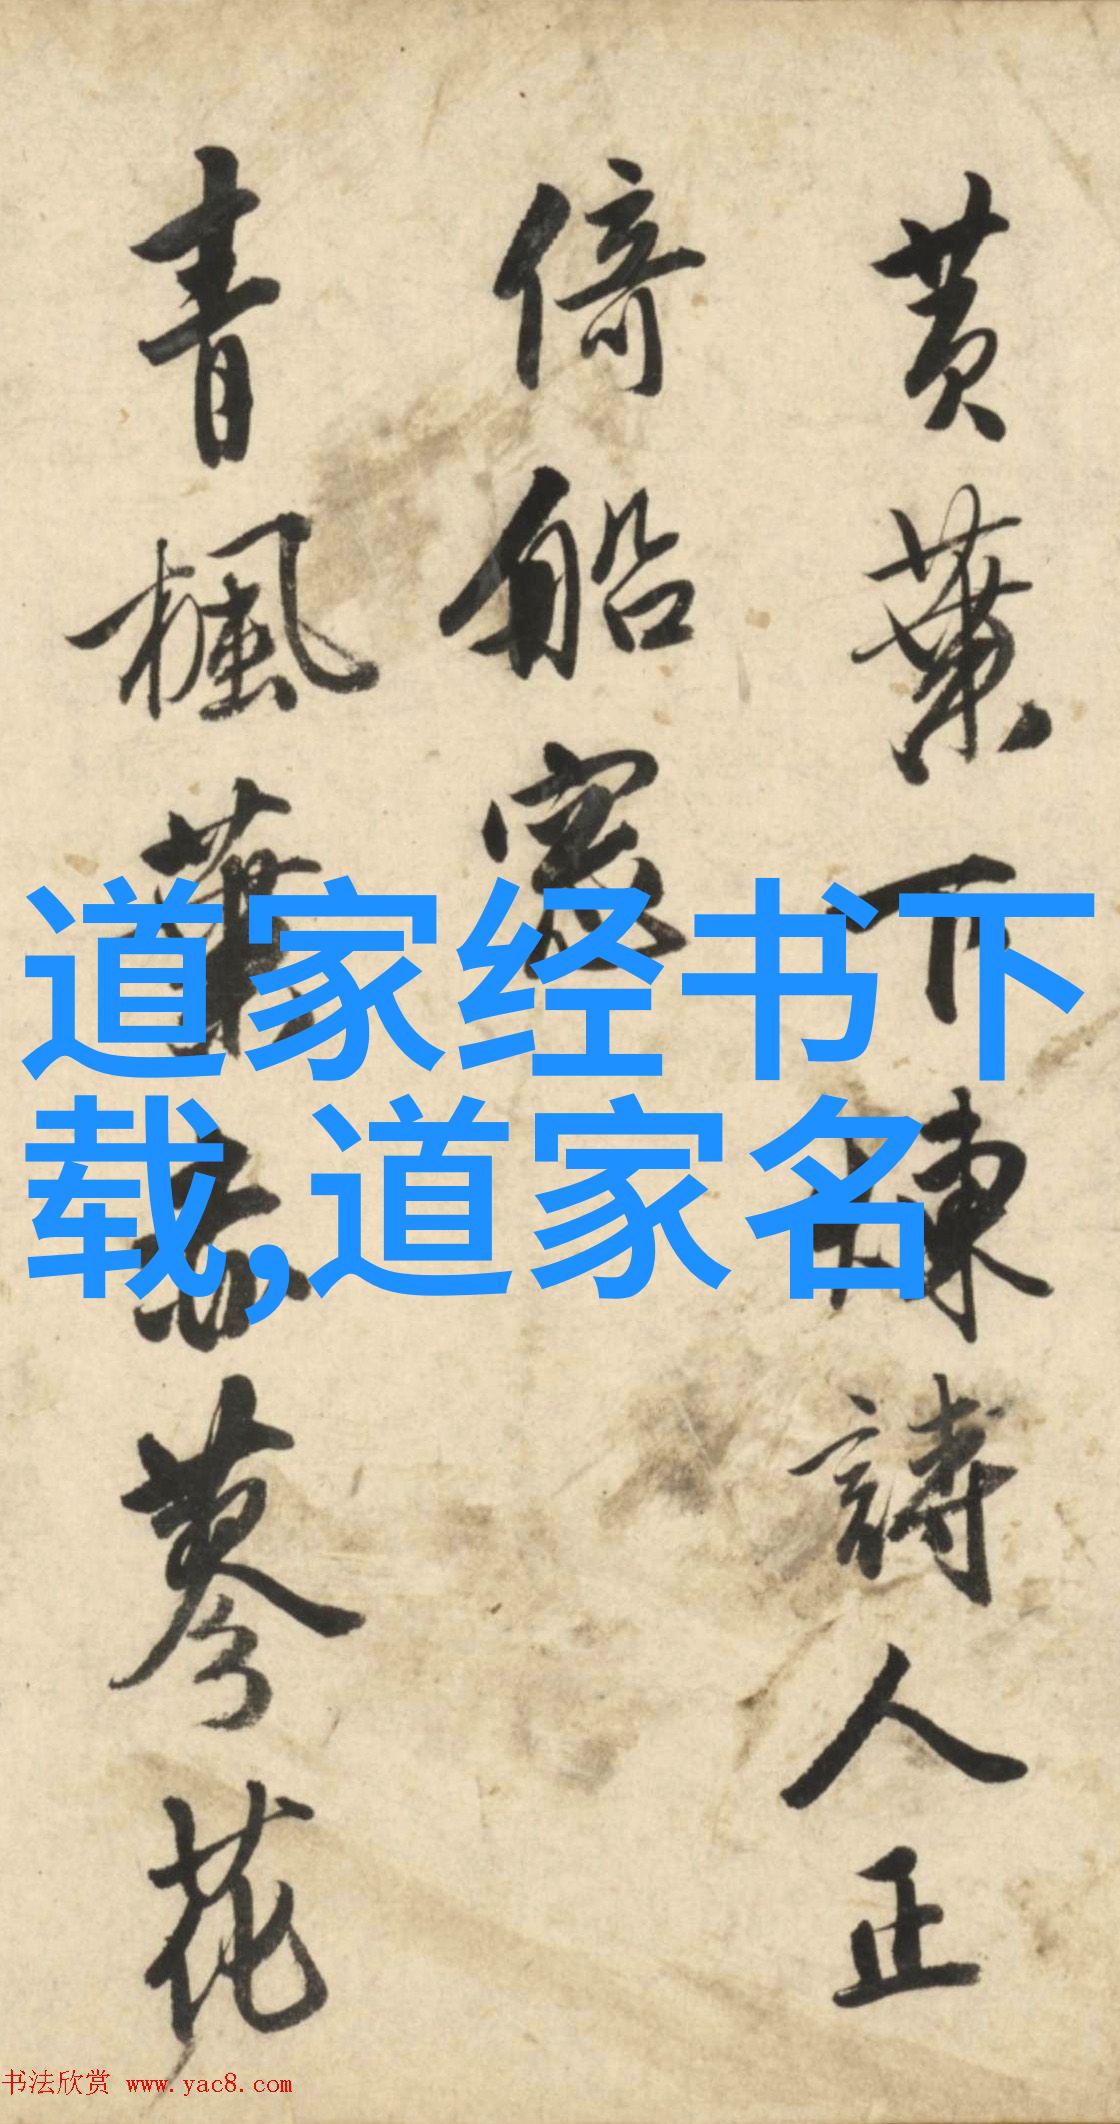 黄葉下詩人正
倚船窓
青楓葉蓼花
道家经书下
载,道家名
书法欣赏 www.yac8.com